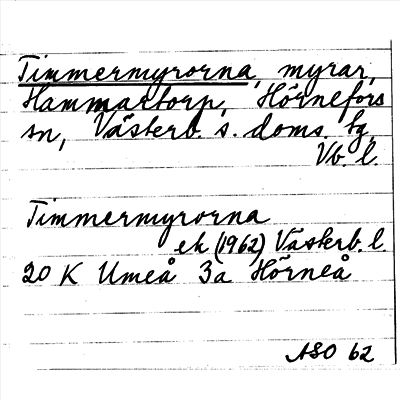 Timmermyrorna, myrar,
Hammartorp, Hörnefors
sn, Västerb. s. doms. tg
Vb. l.
Timmermyrorna
ek (1962) Västerb. l.
20 K Umeå 3a Hörneå
ASO 62